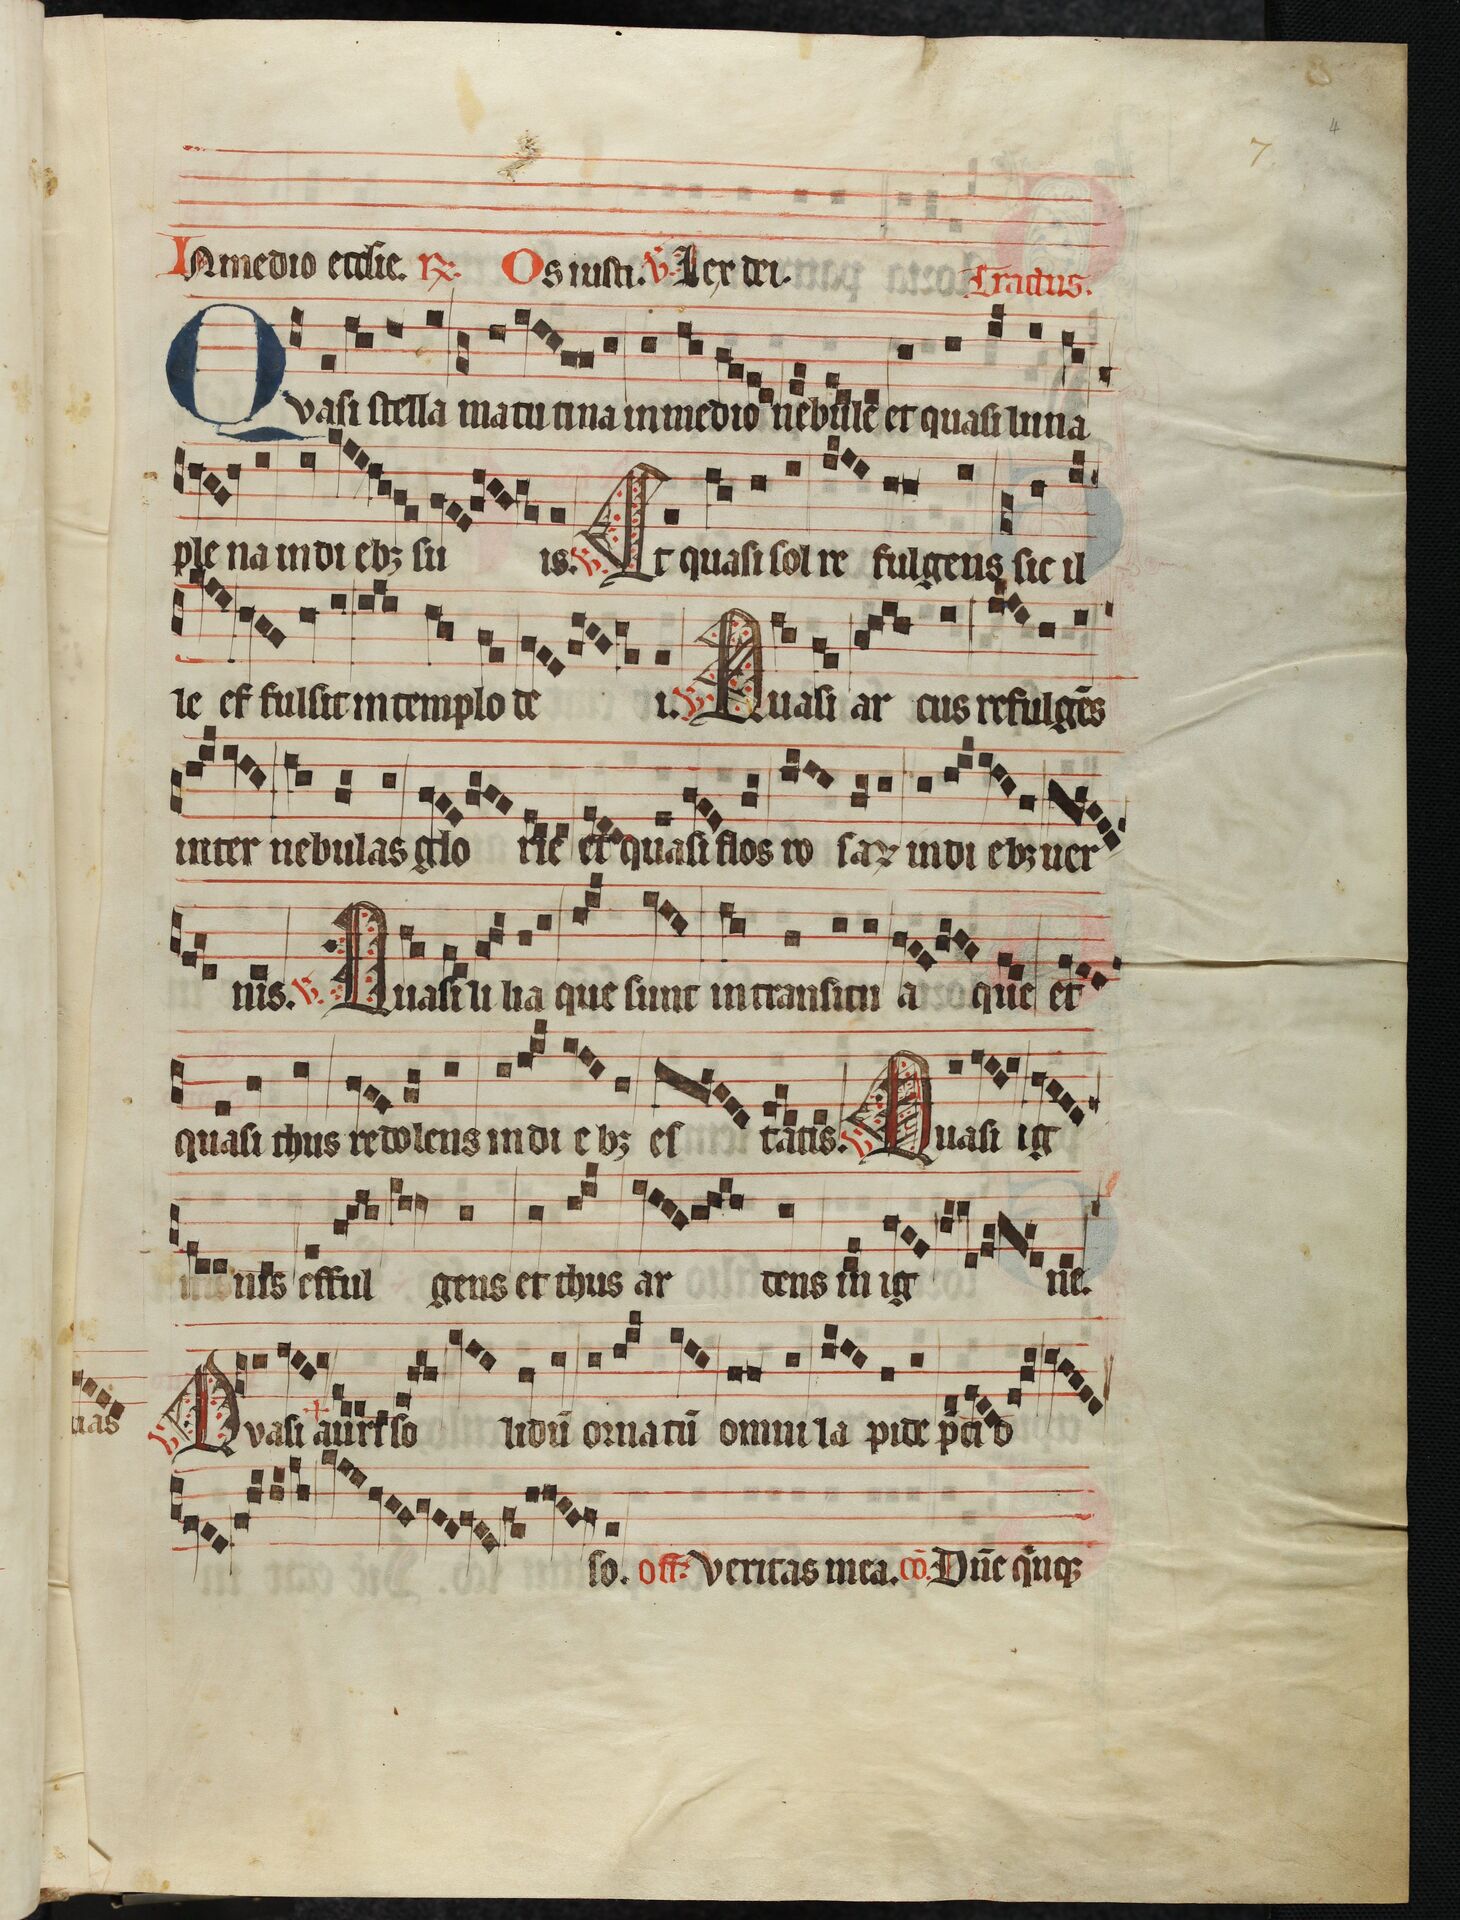 4
7
In medio ecclie. R. Os iusti. V. Lex dei. Tractus.
Qvasi stella matu tina in medio nebule et quasi luna
ple na in di ebꝫ su is. V. Et quasi sol re fulgens sic il
le ef fulsit in templo de i. V. Quasi ar cus refulgēs
inter nebulas glo rie et quasi flos ro saꝝ in di ebꝫ uer
nis. V. Quasi li lia que sunt in transitu a que et
quasi thus redolens in di e bꝫ es tatis. V. Quasi ig
nis efful gens et thus ar dens in ig ne.
uas
V. Qvasi auri so lidū ornatū omni la pide p̄ci o
so. off. Veritas mea. cō. Dn̄e quīqꝫ